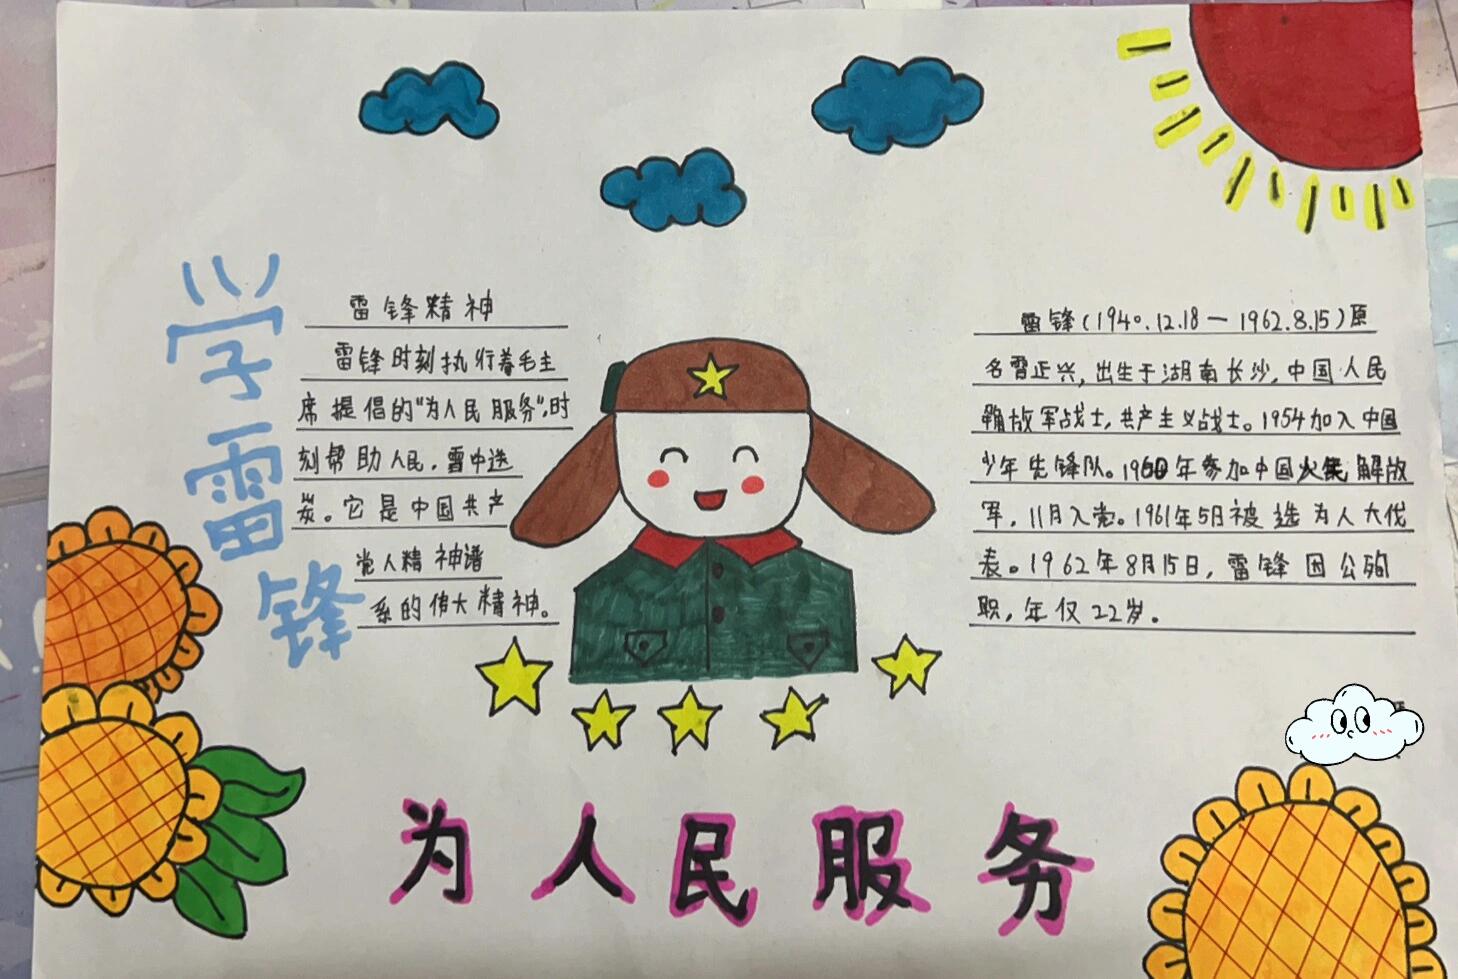 学雷锋
雷锋精神
雷锋时刻执行着毛主
席提倡的“为人民服务”，时
刻帮助人民，雪中送
炭。它是中国共产
党人精神谱
系的伟大精神。
雷锋（1940.12.18—1962.8.15）原
名雷正兴，出生于湖南长沙，中国人民
解放军战士，共产主义战士。1954加入中国
少年先锋队。1960年参加中国人民解放
军，11月入党。1961年5月被选为人大代
表。1962年8月15日，雷锋因公殉
职，年仅22岁。
为人民服务